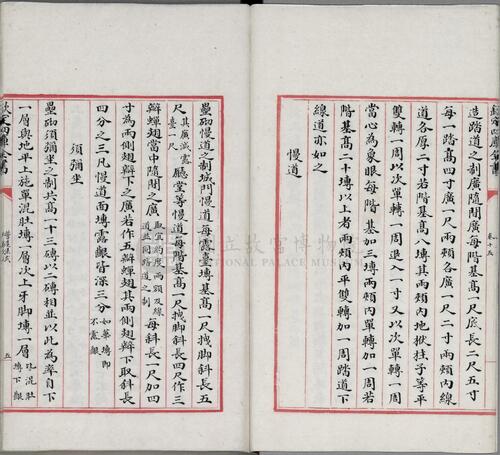 欽定四庫全書
卷十五
造踏道之制廣隨間廣每階基高一尺底長二尺五寸
每一踏高四寸廣一尺兩頰各廣一尺二寸兩頰內線
道各厚二寸若階基高八塼其兩頰內地栿柱子等平
雙轉一周以次單轉一周退入一寸又以次單轉一周
當心為象眼每階基加三塼兩頰內單轉加一周若
階基高二十塼以上者兩頰內平雙轉加一周踏道下
線道亦如之
慢道
壘砌慢道之制城門慢道每露臺塼基高一尺拽腳斜長五
尺其廣減露臺一尺廳堂等慢道每階基高一尺拽腳斜長四尺作三
瓣蟬翅當中隨間之廣取宜約度兩頰及線道並同踏道之制每斜長一尺加四
寸為兩側翅瓣下之廣若作五瓣蟬翅其兩側翅瓣下取斜長
四分之三凡慢道面塼露齦皆深三分如華塼即不露齦
須彌坐
壘砌須彌坐之制共高一十三塼以二塼相並以此為率自下
一層與地平上施單混肚塼一層次上牙腳塼一層比混肚塼下齦
欽定四庫全書
營造法式
五
國立故宮博物院
NATIONAL PALACE MUSEUM